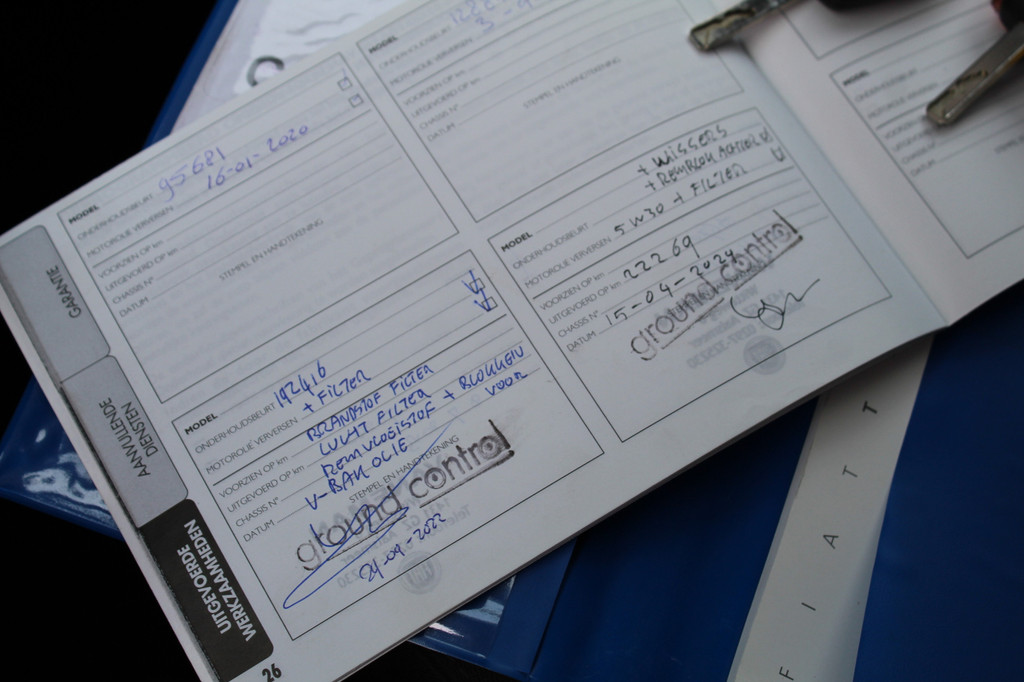 GARANTIE
AANVULLENDE
DIENSTEN
UITGEVOERDE
WERKZAAMHEDEN
26
MODEL
ONDERHOUDSBEURT
95681
MOTOROLIE VERVERSEN
16-01-2020
VOORZIEN OP km
UITGEVOERD OP km
CHASSIS N°
DATUM
STEMPEL EN HANDTEKENING
MODEL
ONDERHOUDSBEURT
192416
MOTOROLIE VERVERSEN
+ FILTER
VOORZIEN OP km
BRANDSTOF FILTER
UITGEVOERD OP km
LUCHT FILTER
CHASSIS N°
REMVLOEISTOF + BLOKKEN
VOOR
DATUM
V-BAK OLIE
STEMPEL EN HANDTEKENING
ground control
24-09-2022
MODEL
ONDERHOUDSBEURT
MOTOROLIE VERVERSEN
3-9
VOORZIEN OP km
UITGEVOERD OP km
CHASSIS N°
DATUM
STEMPEL EN HANDTEKENING
+ WISSERS
MODEL
ONDERHOUDSBEURT
MOTOROLIE VERVERSEN
5W30 + FILTER
VOORZIEN OP km
UITGEVOERD OP km
22269
CHASSIS N°
DATUM
15-04-2024
ground control
MODEL
ONDERHOUDSBEURT
MOTOROLIE
VOORZIEN
UITGEVOERD
CHASSIS N°
DATUM
FIAT T